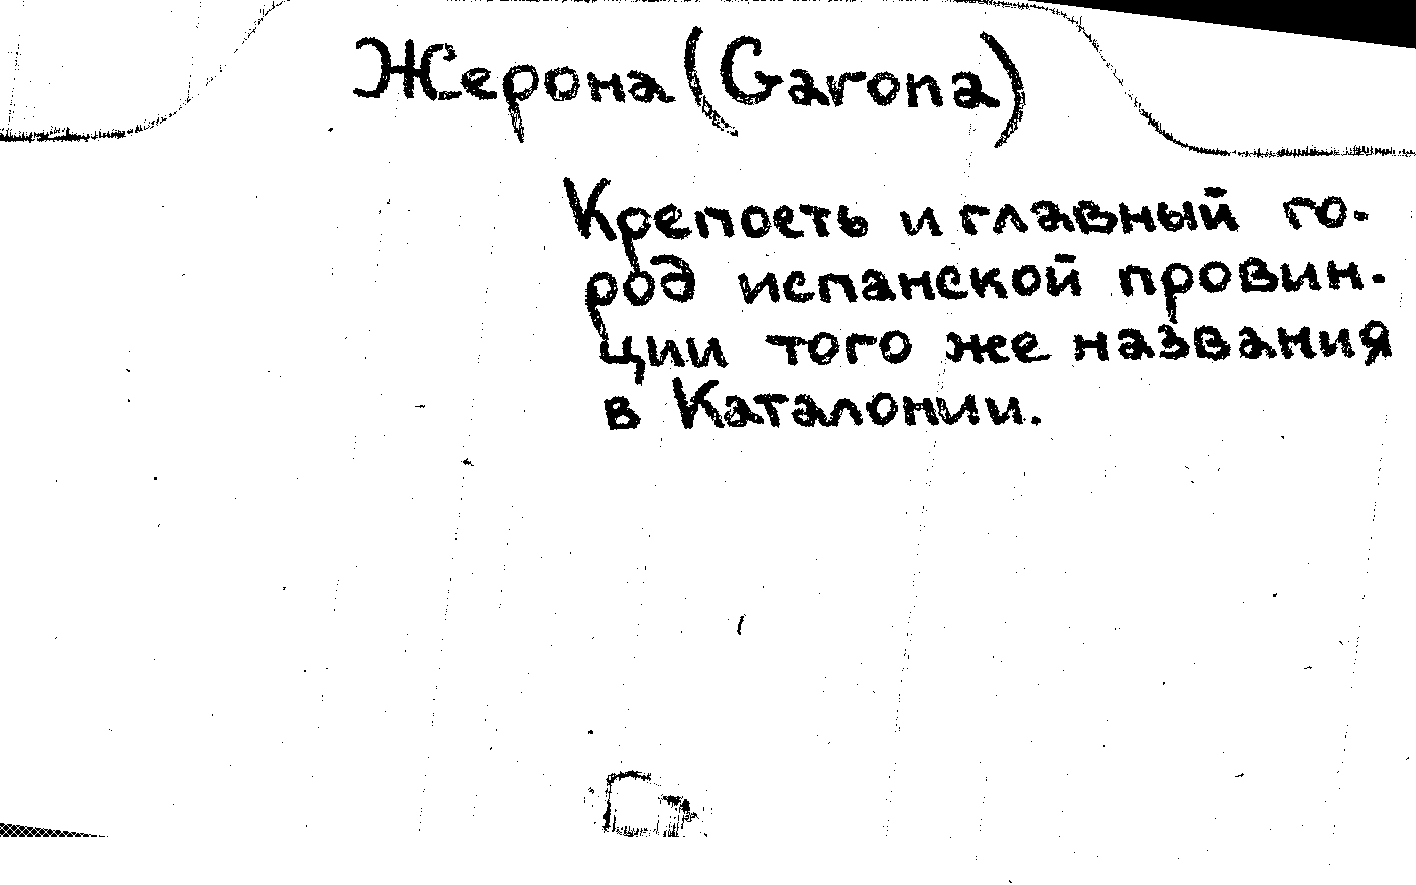 Жерона (Garona)
Крепость и главный го-
род испанской провин-
ции того же названия
в Каталонии.